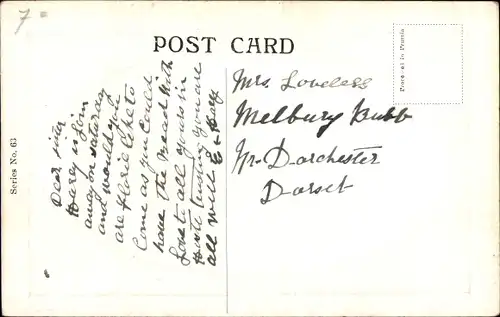 7
POST CARD
Series No. 63
Place of in Prussia
Dear sister
Harry is goin
away on saturday
and would you
are florie like to
Come as you could
have the Bread With
Love to all yours in
Haste trusting you are
all well E & Harry
Mrs. Loveless
Melbury Bubb
Nr. Dorchester
Dorset